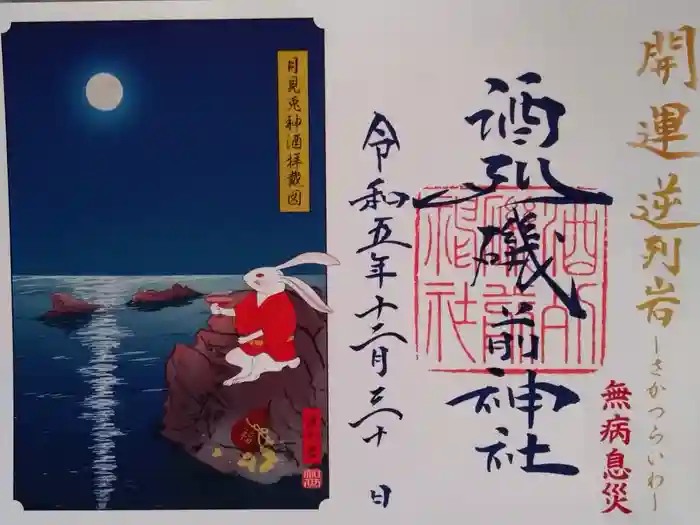 開運 逆列岩
―さかつらいわ―
無病息災
酒列磯前神社
酒列磯前神社
令和五年十二月三十日
月見兎神酒拝戴図